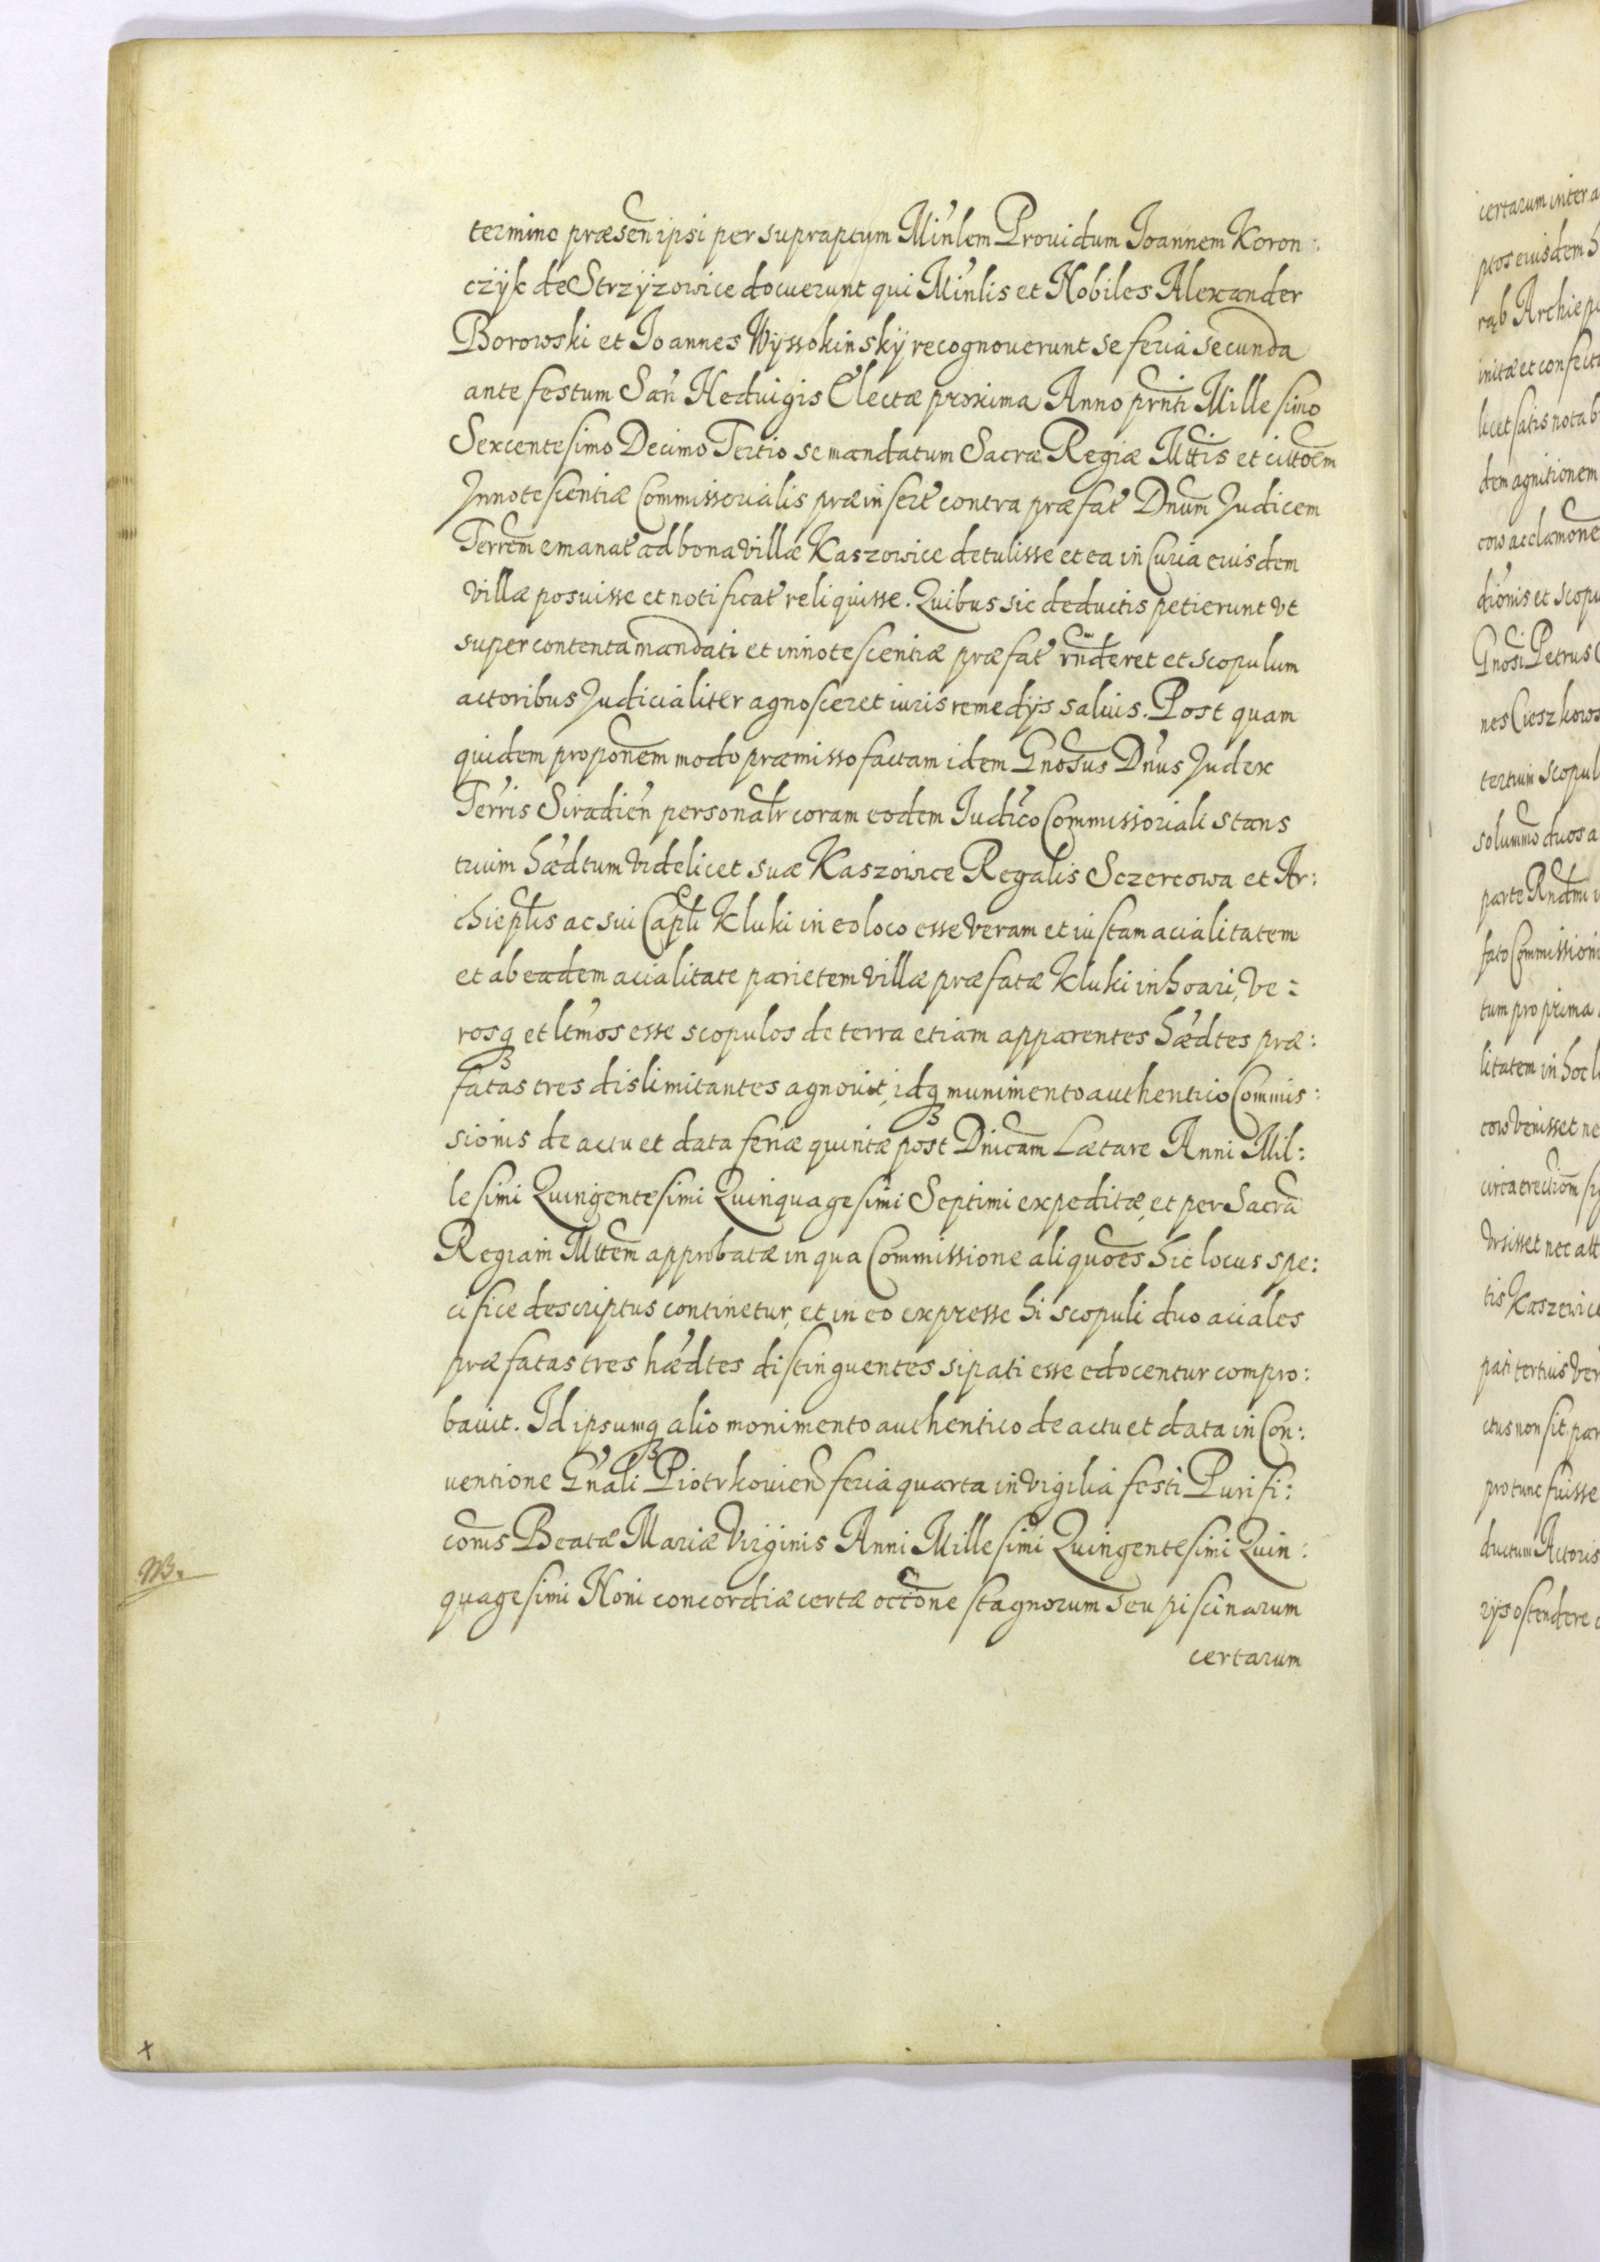 termino præsen ipsi per supraptum Minlem Prouidum Joannem Koron:
czÿk de Strzÿzowice docuerunt qui Minlis et Nobiles Alexander
Borowski et Joannes Wÿssokinskÿ recognouerunt se feria secunda
ante festum San Heduigis Electæ proxima Anno prnti Millesimo
Sexcentesimo Decimo Tertio se mandatum Sacræ Regiæ Mttis et cittoem
Innotescentiæ Commissorialis præinsert contra præfat Dnum Judicem
Terrem emanat ad bona villæ Kaszowice detulisse et ea in Curia eiusdem
villæ posuisse et notificat reliquisse. Quibus sic deductis petierunt vt
super contenta mandati et innotescentiæ præfat rnderet et scopulum
actoribus Judicialiter agnosceret iuris remedÿs saluis. Post quam
quidem proponem modo præmisso factam idem Gnosus Dnus Judex
Terris Siradien personalr coram eodem Judico Commissoriali stans
trium hædtum videlicet suæ Kaszowice Regalis Sczercowa et Ar:
chieplis ac sui Capli Kluki in eo loco esse veram et iustam acialitatem
et ab eadem acialitate parietem villæ præfatæ Kluki inhoari, ve:
rosq et ltmos esse scopulos de terra etiam apparentes hædtes præ:
fatas tres dislimitantes agnouit, idq munimento authentico Commis:
sionis de actu et data feriæ quintæ post Dnicam Lætare Anni Mil:
lesimi Quingentesimi Quinquagesimi Septimi expeditæ, et per Sacra
Regiam Mttem approbatæ in qua Commissione aliquoes hic locus spe:
cifice descriptus continetur, et in eo expresse hi scopuli duo aciales
præfatas tres hædtes distinguentes sipati esse edocentur compro:
bauit. Id ipsumq alio monimento authentico de actu et data in Con:
uentione Gnali Piotrkouien feria quarta in vigilia festi Purifi:
conis Beatæ Mariæ Virginis Anni Millesimi Quingentesimi Quin:
quagesimi Noni concordiæ certæ occone stagnorum seu piscinarum
certarum
NB.
x
certarum inter
ptos eiusdem
rąb
initæ et
licet satis
dem agnitionem
dionis et
Gnosi Petrus
nes
tertium
solummo duos
parte Rndmi
fato
tum pro prima
litatem in hoc
cow venisset
circa
nec
tis
pati tertius
ctus non sit
pro tunc fuisse
ductum Actoris
rÿs ostendere